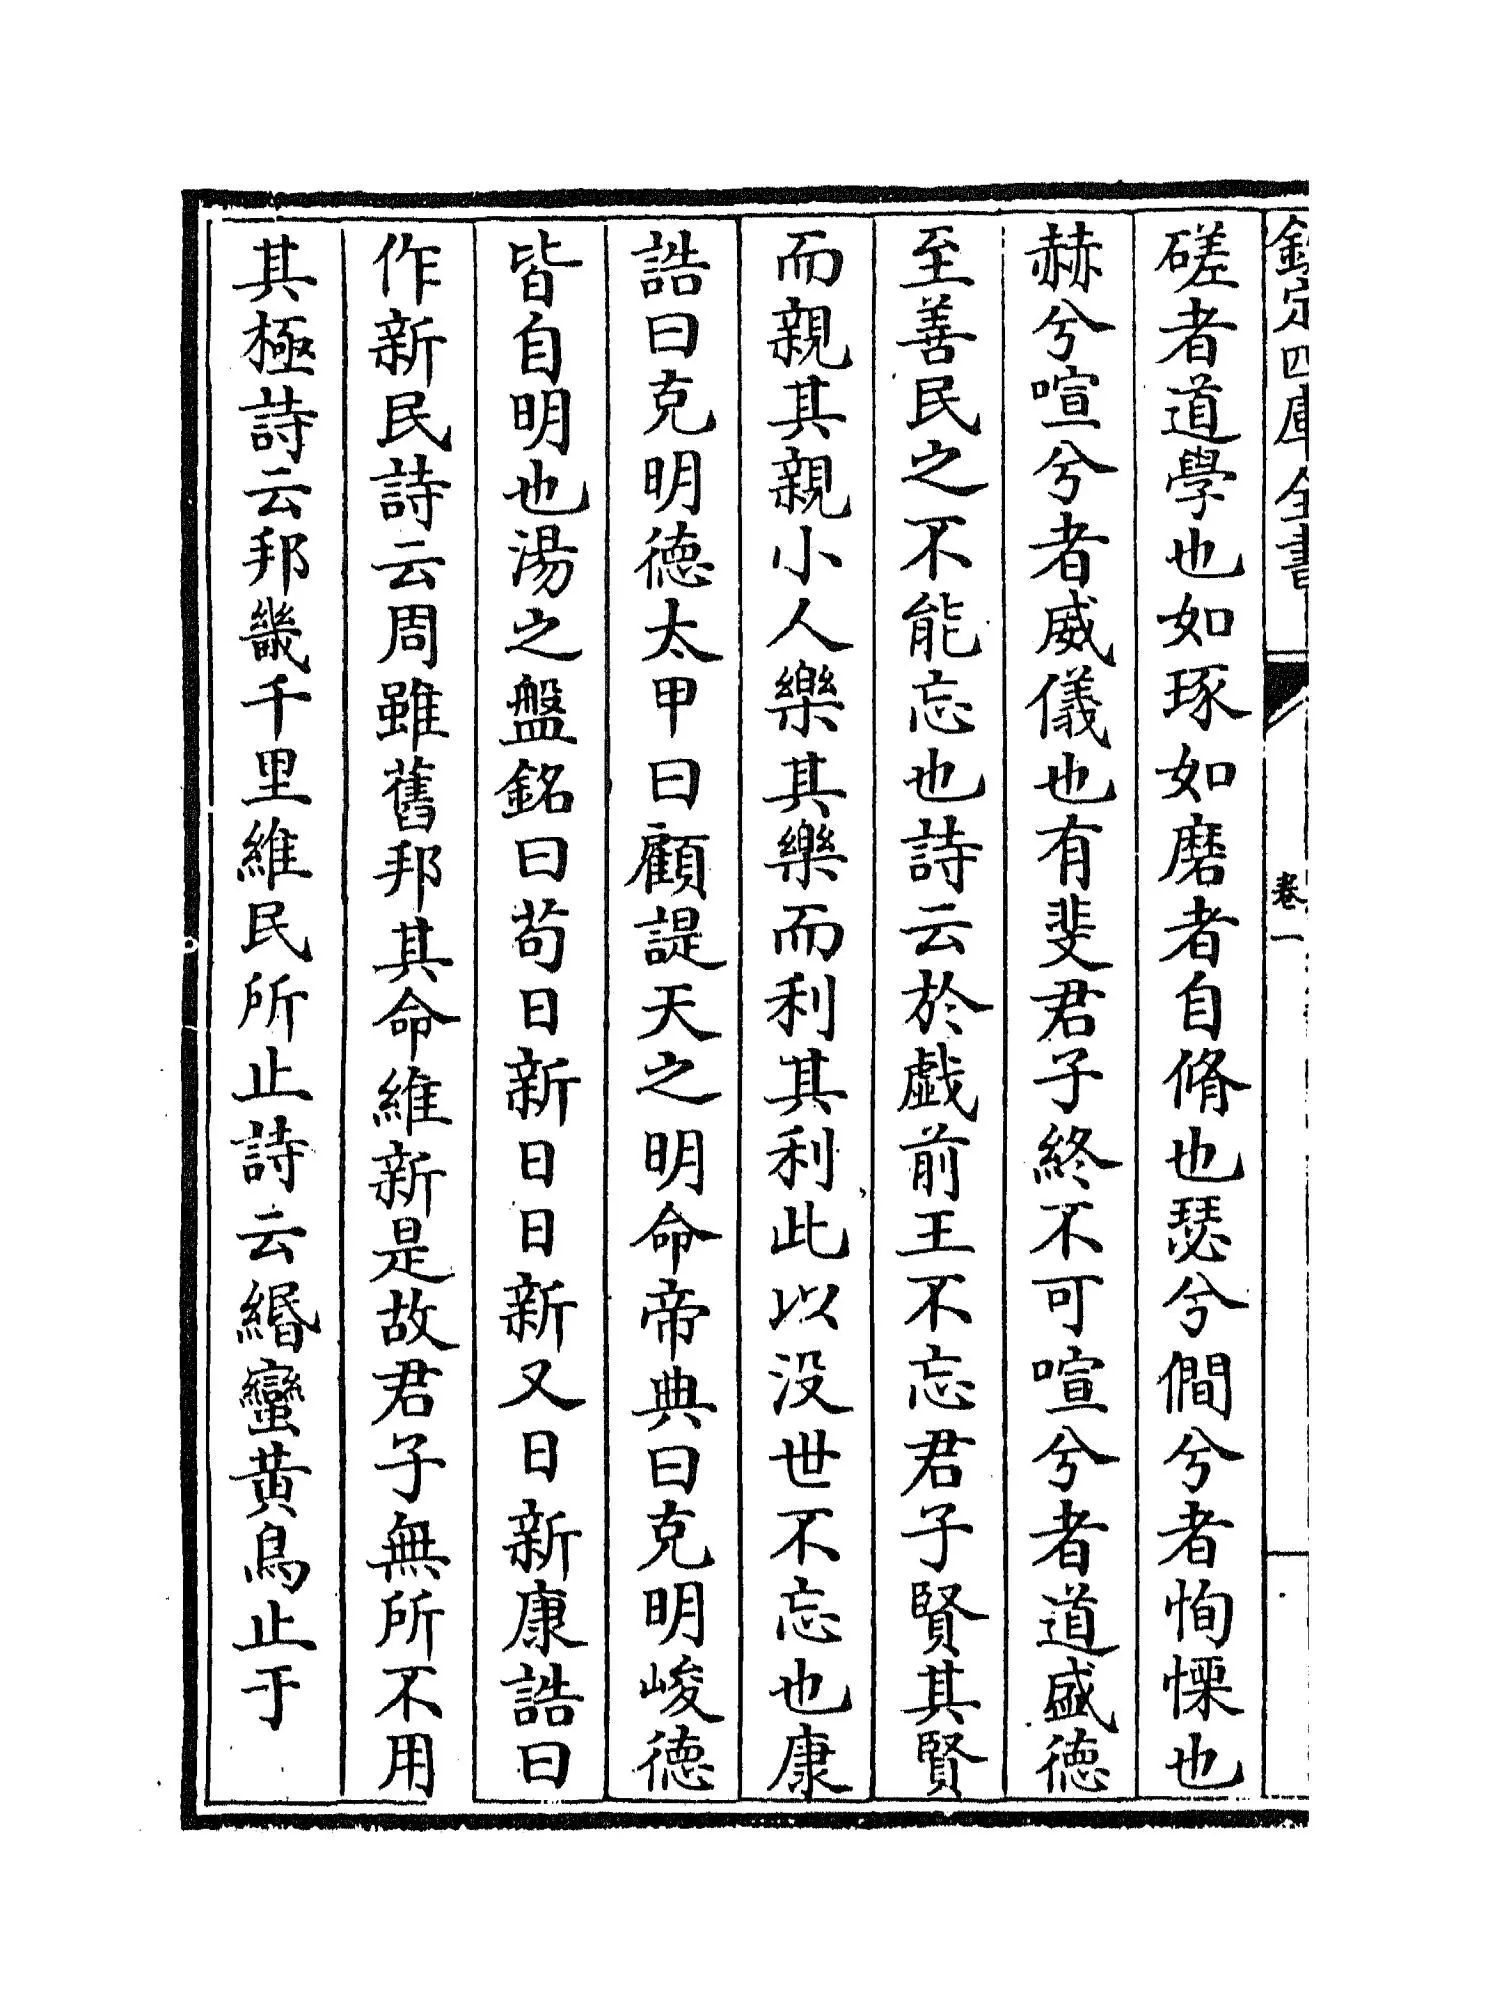 欽定四庫全書
卷一
磋者道學也如琢如磨者自脩也瑟兮僩兮者恂慄也
赫兮喧兮者威儀也有斐君子終不可喧兮者道盛德
至善民之不能忘也詩云於戯前王不忘君子賢其賢
而親其親小人樂其樂而利其利此以没世不忘也康
誥曰克明德太甲曰顧諟天之明命帝典曰克明峻德
皆自明也湯之盤銘曰苟日新日日新又日新康誥曰
作新民詩云周雖舊邦其命維新是故君子無所不用
其極詩云邦畿千里維民所止詩云緡蠻黄鳥止于